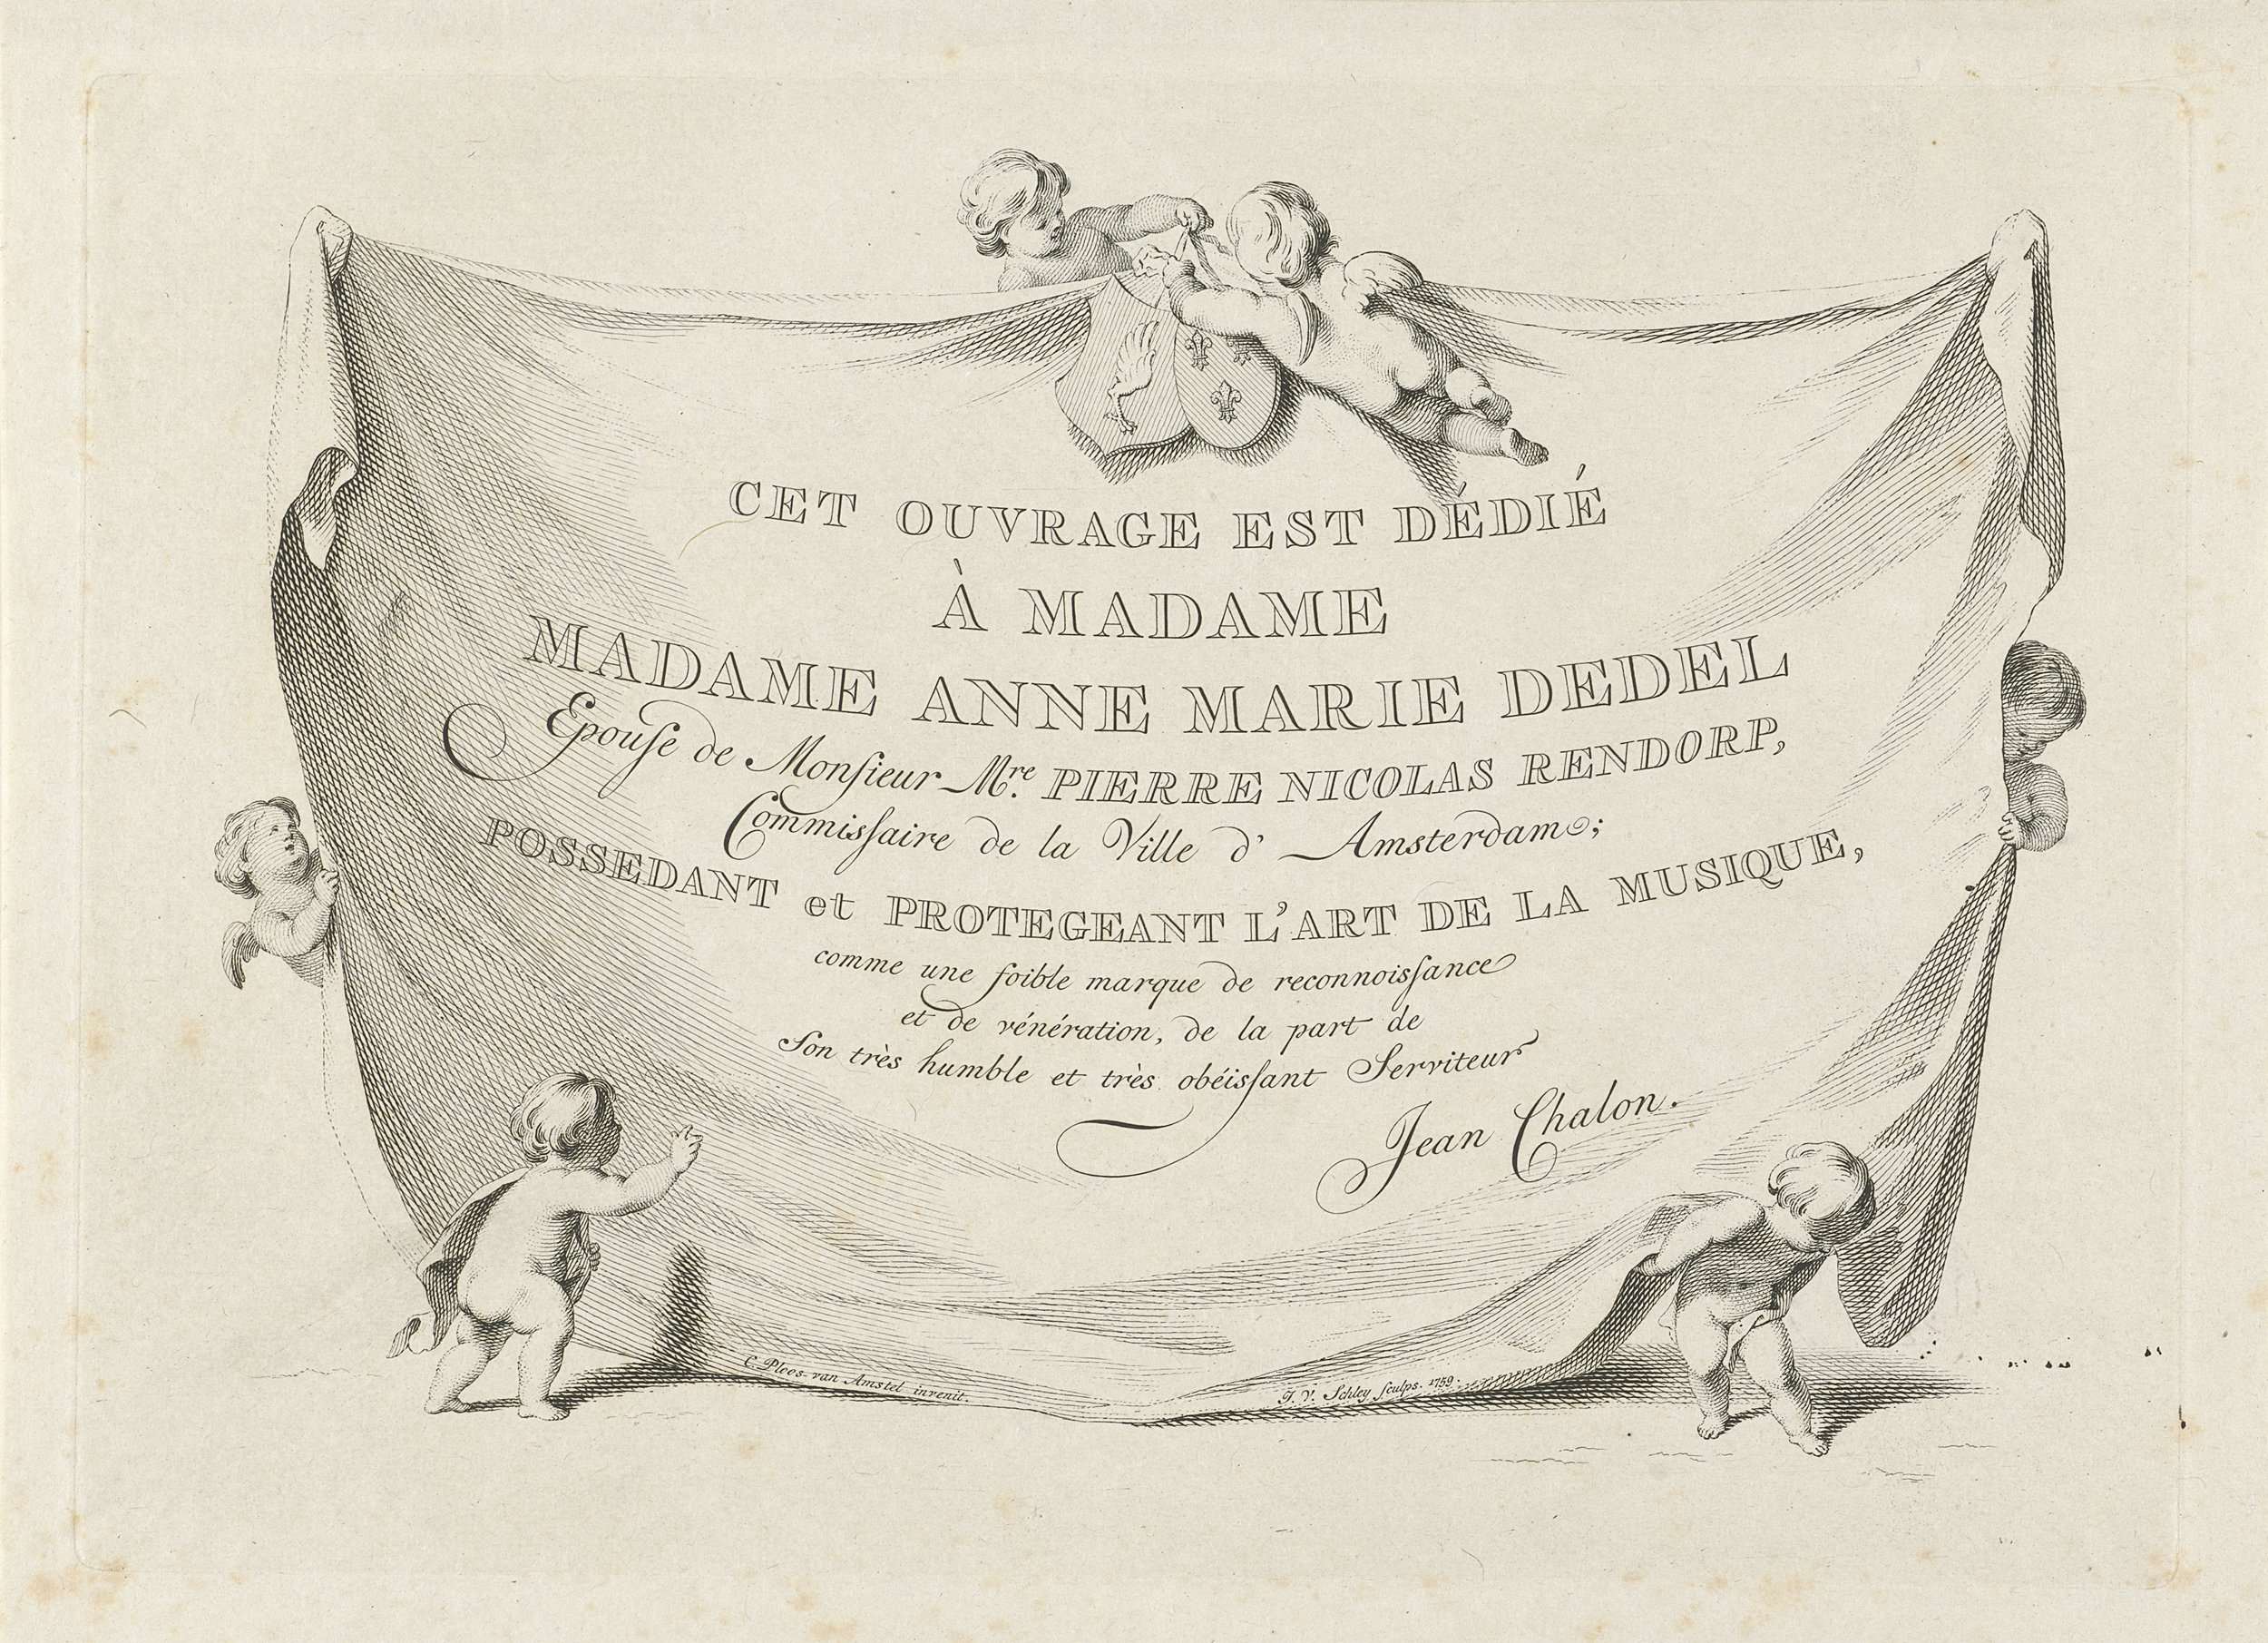 CET OUVRAGE EST DÉDIÉ
À MADAME
MADAME ANNE MARIE DEDEL
Epouſe de Monſieur Mre. PIERRE NICOLAS RENDORP,
Commisſaire de la Ville d' Amsterdam;
POSSEDANT et PROTEGEANT L'ART DE LA MUSIQUE,
comme une foible marque de reconnoisſance
et de vénération, de la part de
Son très humble et très obéisſant Serviteur
Jean Chalon.
C. Ploos van Amstel invenit.
J. V. Schley ſculps. 1759.